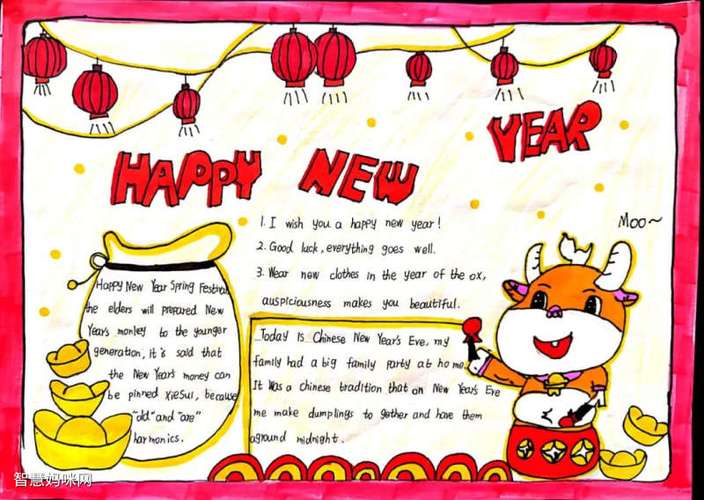 HAPPY NEW YEAR
Moo~
1. I wish you a happy new year!
2. Good luck, everything goes well.
3. Wear new clothes in the year of the ox,
auspiciousness makes you beautiful.
Happy New Year Spring Festival
the elders will prepared New
Year's monley to the younger
generation, it's said that
the New Year's money can
be pinned XieSui, because
"old" and "one"
harmonics.
Today is Chinese New Year's Eve, my
family had a big family party at home
It Was a chinese tradition that on New Year's Eve
me make dumplings to gether and have them
aground midnight.
智慧妈咪网